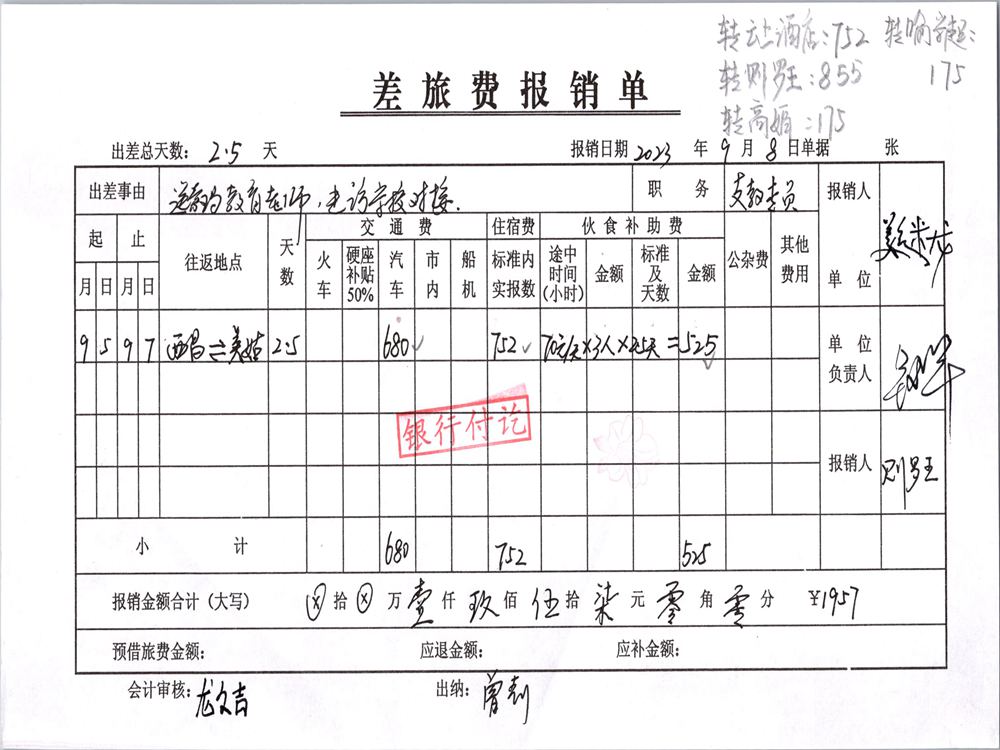 转云上酒店:752 转喻学超:
转则罗王:855 175
转高媚:175
差旅费报销单
出差总天数: 2.5 天 报销日期 2023 年 9 月 8 日单据 张
出差事由 教育老师,走访学校对接. 职务 支教专员 报销人
起 止 往返地点 天数 交通费 住宿费 伙食补助费 公杂费 其他费用 单位
月 日 月 日 火车 硬座补贴50% 汽车 市内 船机 标准内实报数 途中时间(小时) 金额 标准及天数 金额
9 5 9 7 西昌⇌美姑 2.5 680 752 70元/天×3人×2.5天=525 单位负责人
银行付讫
报销人 则罗王
小计 680 752 525
报销金额合计(大写) ⊗ 拾 ⊗ 万 壹 仟 玖 佰 伍 拾 柒 元 零 角 零 分 ¥1957
预借旅费金额: 应退金额: 应补金额:
会计审核: 龙文吉 出纳: 曾